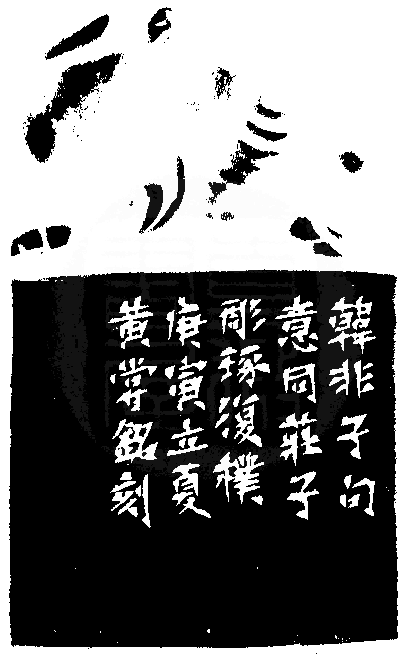 韓非子句
意同莊子
彫琢復樸
庚寅立夏
黃嘗銘刻